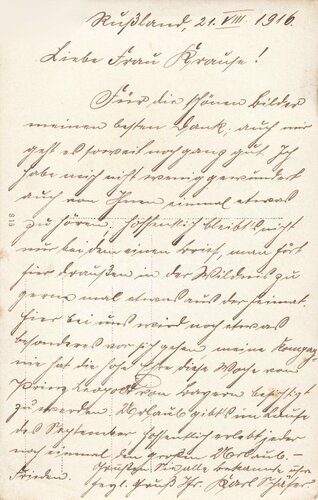 Rußland, 21. VIII. 1916.
Liebe Frau Krause!
Für die schönen Bilder
meinen besten Dank; auch mir
geht es soweit noch ganz gut. Ich
habe mich nicht wenig gewundert
auch von Ihnen einmal etwas
zu hören, hoffentlich bleibts nicht
nur bei dem einen Brief, man hört
hier draußen in der Wildnis zu
gerne mal etwas aus der Heimat.
Hier bei uns wird noch etwas
besonderes vor sich gehen, meine Kompag-
nie hat die hohe Ehre diese Woche von
Prinz Leopold von Bayern besichtigt
zu werden. Urlaub gibts im Laufe
des September, hoffentlich erlebt jeder
noch einmal den großen Urlaub-
Frieden.
Grüßen Sie alle bekannte
herzl. Gruß Ihr. Karl Schäfer.
818